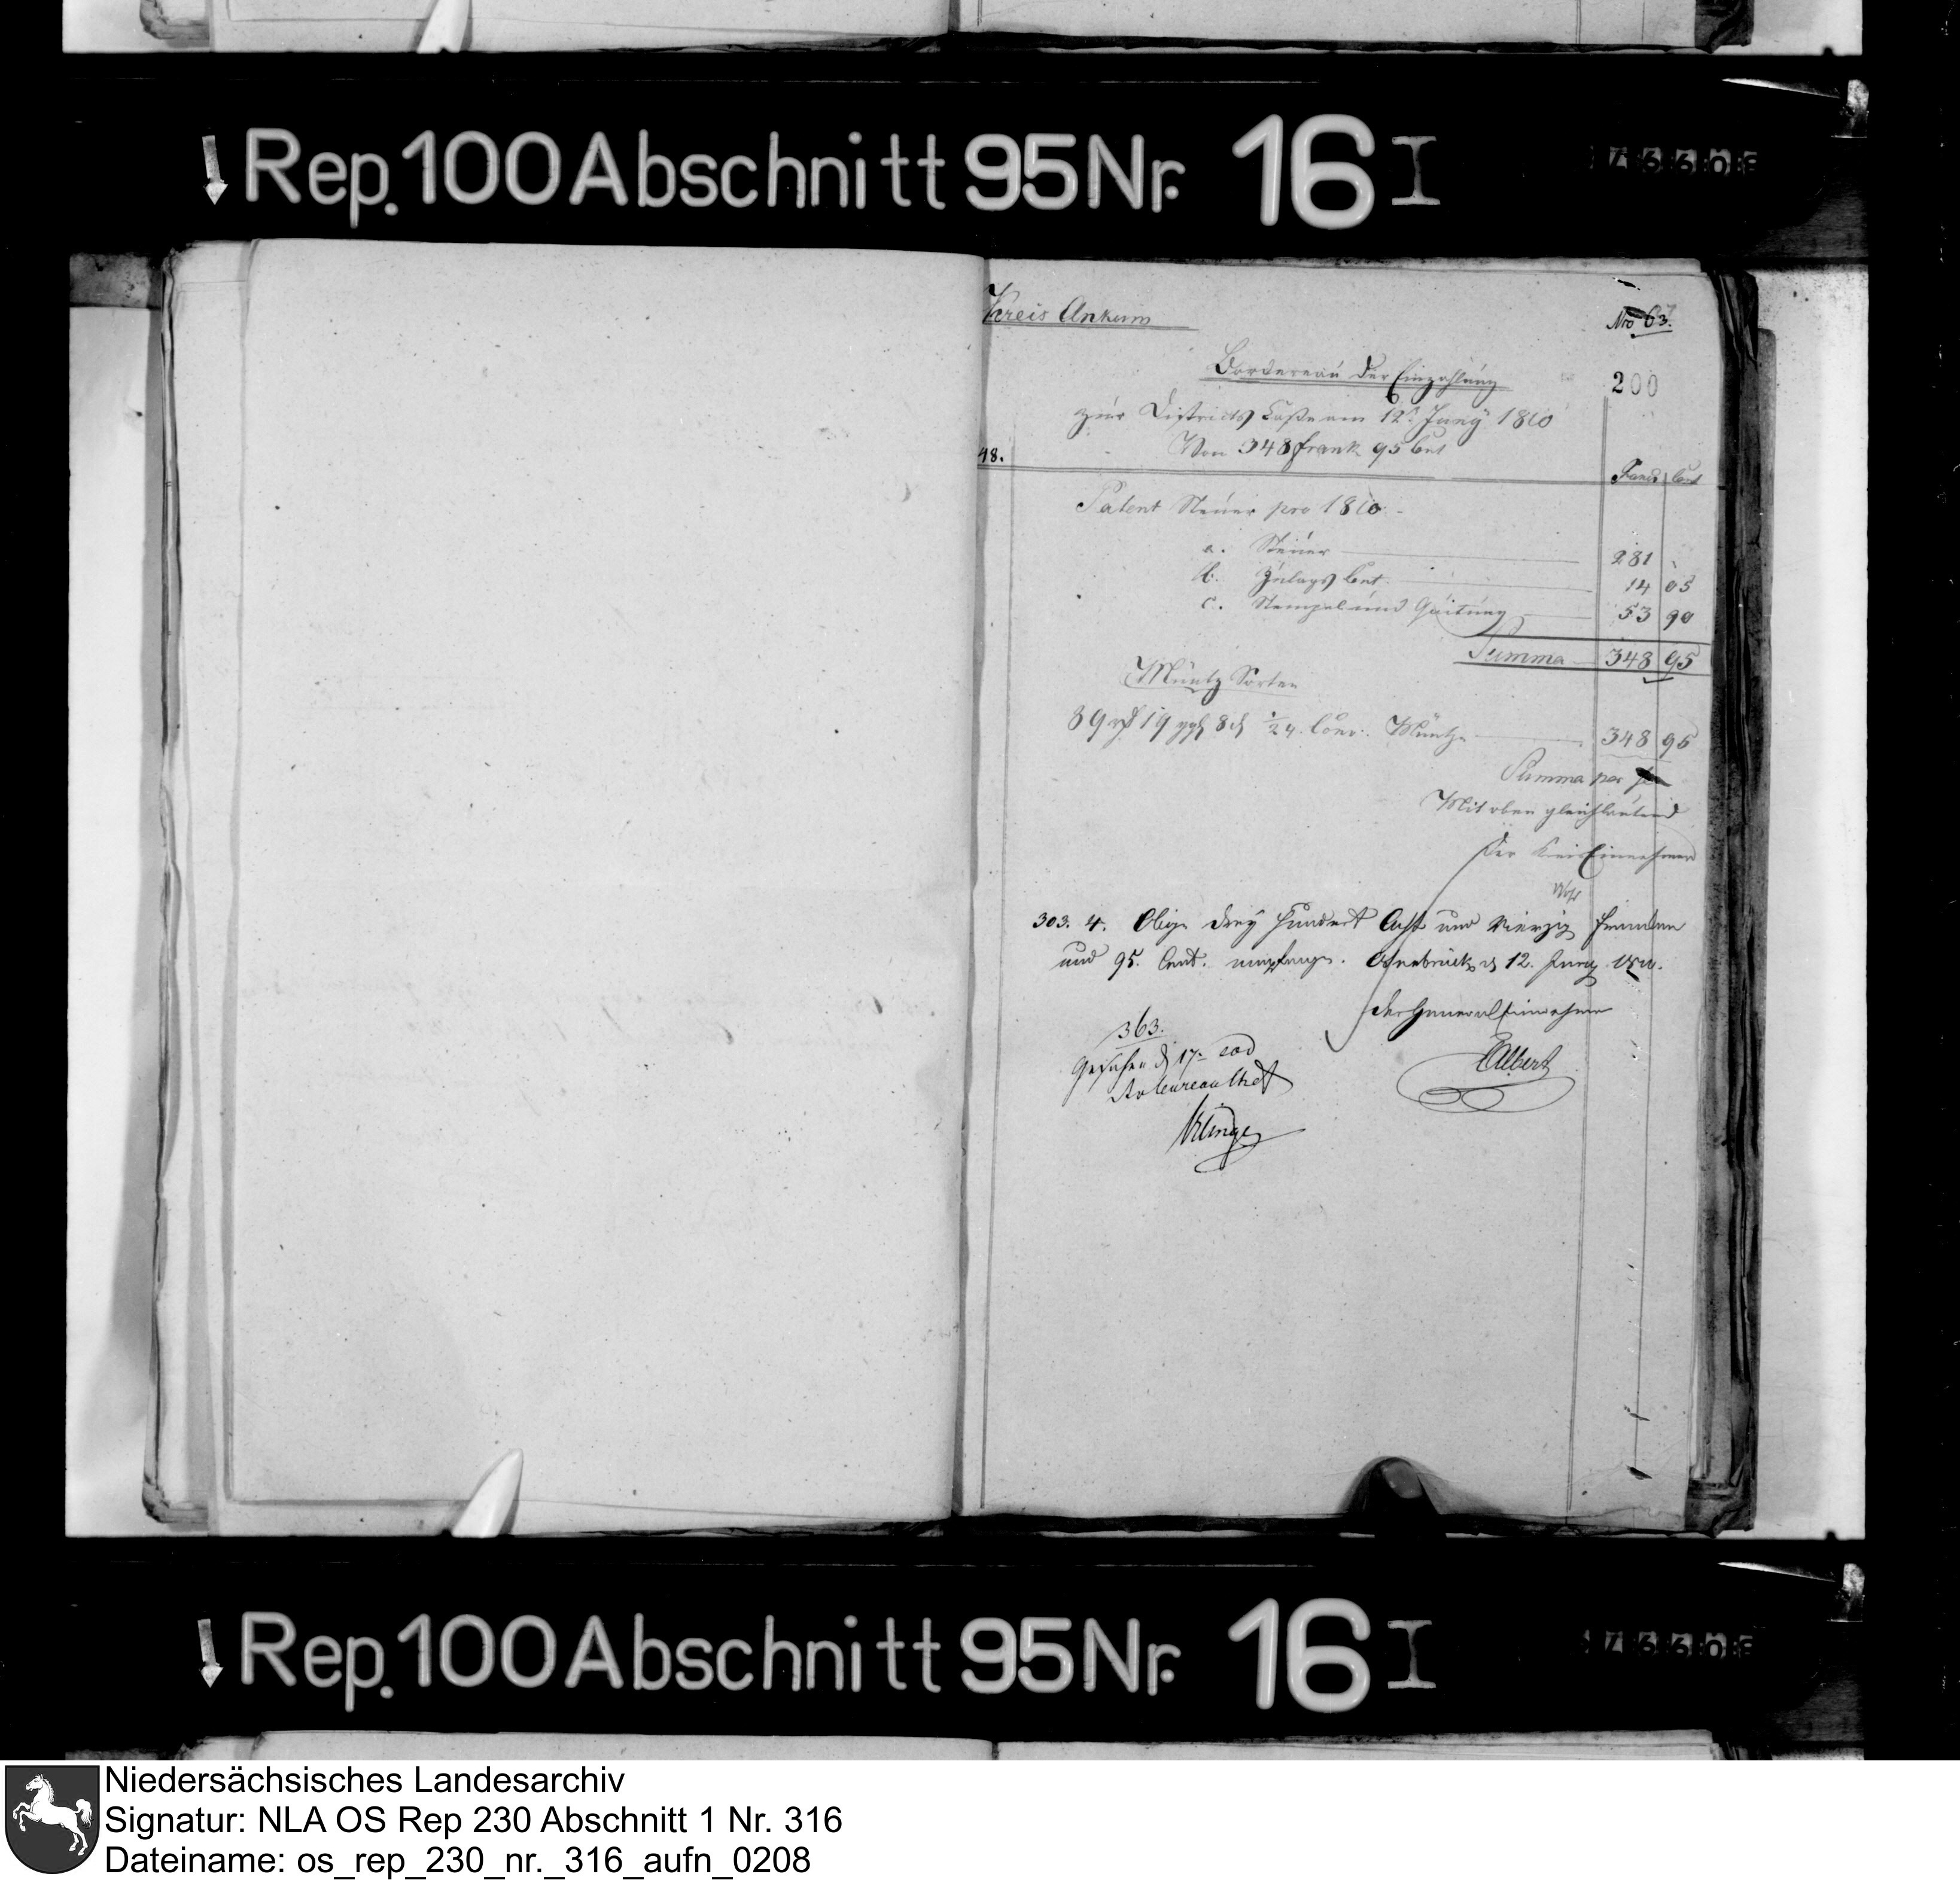 Rep. 100 Abschnitt 95 Nr. 16 I
Kreis Ankum
Nro 63.
Bordereau der Einzahlung
200
zur Districts Casse am 12t Juny 1810
Von 348 frank 95 Cent
48.
Francs Cent
Patent Steuer pro 1810 -
a. Steuer 281
b. Zulags Cent. 14 05
c. Stempel und Quitung 53 90
Summa 348 95
Müntz Sorten
89 19 ggl 8 1/24 Conv. Müntze 348 95
Summa per se
Mit oben gleichlautend
Der Kreis Einnehmer
303. 4. Obige drey Hundert Acht und Vierzig Franken
und 95. Cent. empfangen. Osnabrück d 12. Juny 1810.
Der General Einnehmer
363.
Gesehen d 17. eod
Albert
Der Bureau Chef
Klinge
Rep. 100 Abschnitt 95 Nr. 16 I
Niedersächsisches Landesarchiv
Signatur: NLA OS Rep 230 Abschnitt 1 Nr. 316
Dateiname: os_rep_230_nr._316_aufn_0208